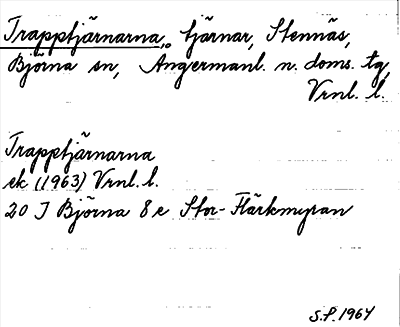 Trapptjärnarna, tjärnar, Stennäs,
Björna sn, Ångermanl. n. doms. tg,
Vrnl. l.
Trapptjärnarna
ek (1963) Vrnl. l.
20 I Björna 8 e Stor-Flärkmyran
S.P. 1964